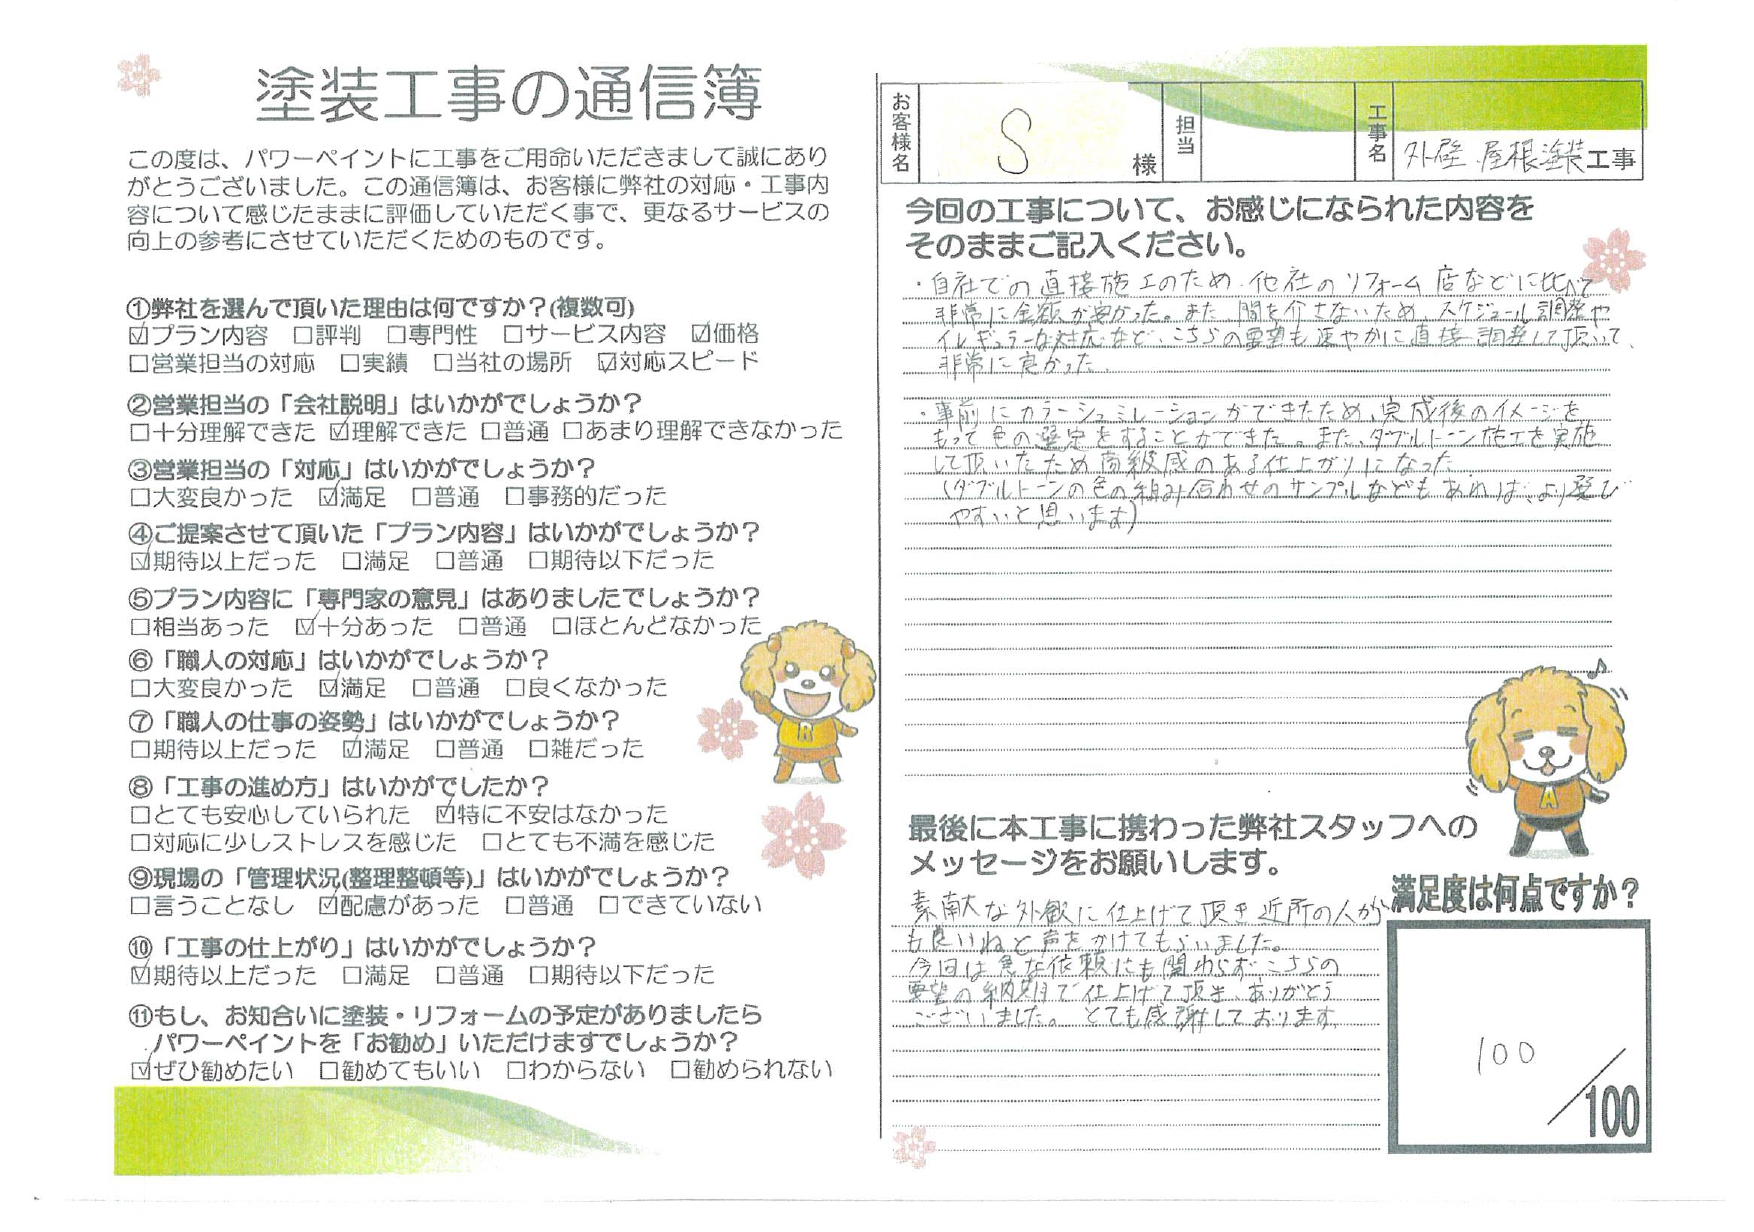 塗装工事の通信簿
この度は、パワーペイントに工事をご用命いただきまして誠にあり
がとうございました。この通信簿は、お客様に弊社の対応・工事内
容について感じたままに評価していただく事で、更なるサービスの
向上の参考にさせていただくためのものです。
①弊社を選んで頂いた理由は何ですか?(複数可)
☑プラン内容 □評判 □専門性 □サービス内容 ☑価格
□営業担当の対応 □実績 □当社の場所 ☑対応スピード
②営業担当の「会社説明」はいかがでしょうか?
□十分理解できた ☑理解できた □普通 □あまり理解できなかった
③営業担当の「対応」はいかがでしょうか?
□大変良かった ☑満足 □普通 □事務的だった
④ご提案させて頂いた「プラン内容」はいかがでしょうか?
☑期待以上だった □満足 □普通 □期待以下だった
⑤プラン内容に「専門家の意見」はありましたでしょうか?
□相当あった ☑十分あった □普通 □ほとんどなかった
⑥「職人の対応」はいかがでしょうか?
□大変良かった ☑満足 □普通 □良くなかった
⑦「職人の仕事の姿勢」はいかがでしょうか?
□期待以上だった ☑満足 □普通 □雑だった
⑧「工事の進め方」はいかがでしたか?
□とても安心していられた ☑特に不安はなかった
□対応に少しストレスを感じた □とても不満を感じた
⑨現場の「管理状況(整理整頓等)」はいかがでしょうか?
□言うことなし ☑配慮があった □普通 □できていない
⑩「工事の仕上がり」はいかがでしょうか?
☑期待以上だった □満足 □普通 □期待以下だった
⑪もし、お知合いに塗装・リフォームの予定がありましたら
パワーペイントを「お勧め」いただけますでしょうか?
☑ぜひ勧めたい □勧めてもいい □わからない □勧められない
お客様名 S 様 担当 工事名 外壁 屋根塗装工事
今回の工事について、お感じになられた内容を
そのままご記入ください。
・自社での直接施工のため、他社のリフォーム店などに比べて
非常に金額が安かった。また、間を介さないため、スケジュール調整や
イレギュラーな対応など、こちらの要望も速やかに直接調整して頂いて、
非常に良かった。
・事前にカラーシュミレーションができたため、完成後のイメージを
もって色の選定をすることができた。また、ダブルトーン施工を実施
して頂いたため高級感のある仕上がりになった。
(ダブルトーンの色の組み合わせのサンプルなどもあれば、より選び
やすいと思います)
最後に本工事に携わった弊社スタッフへの
メッセージをお願いします。
素敵な外観に仕上げて頂き近所の人から
も良いねと声をかけてもらいました。
今回は急な依頼にも関わらず、こちらの
要望の納期で仕上げて頂き、ありがとう
ございました。とても感謝しております。
満足度は何点ですか?
100
/100
R
A